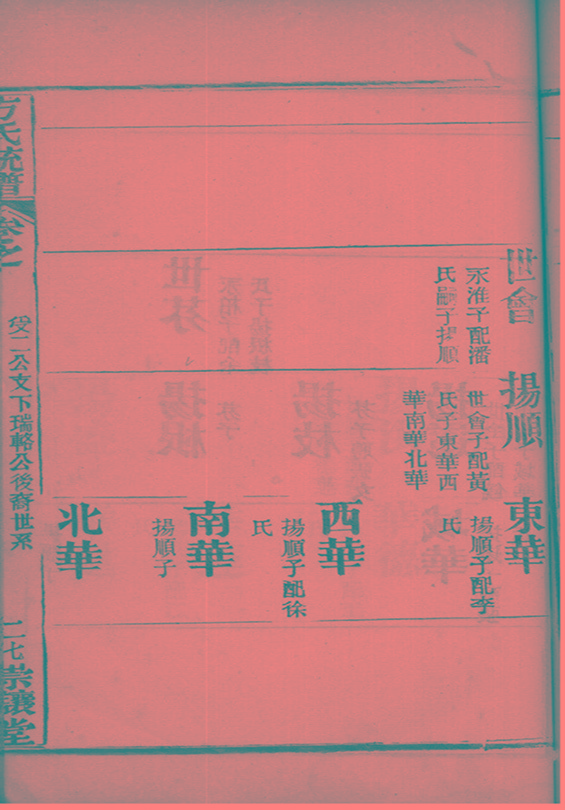 世會
永淮子配潘
氏嗣子揚順
揚順
世會子配黃
氏子東華西
華南華北華
東華
揚順子配李
氏
西華
揚順子配徐
氏
南華
揚順子
北華
方氏統譜
卷之
受二公支下瑞輅公後裔世系
二七
崇讓堂